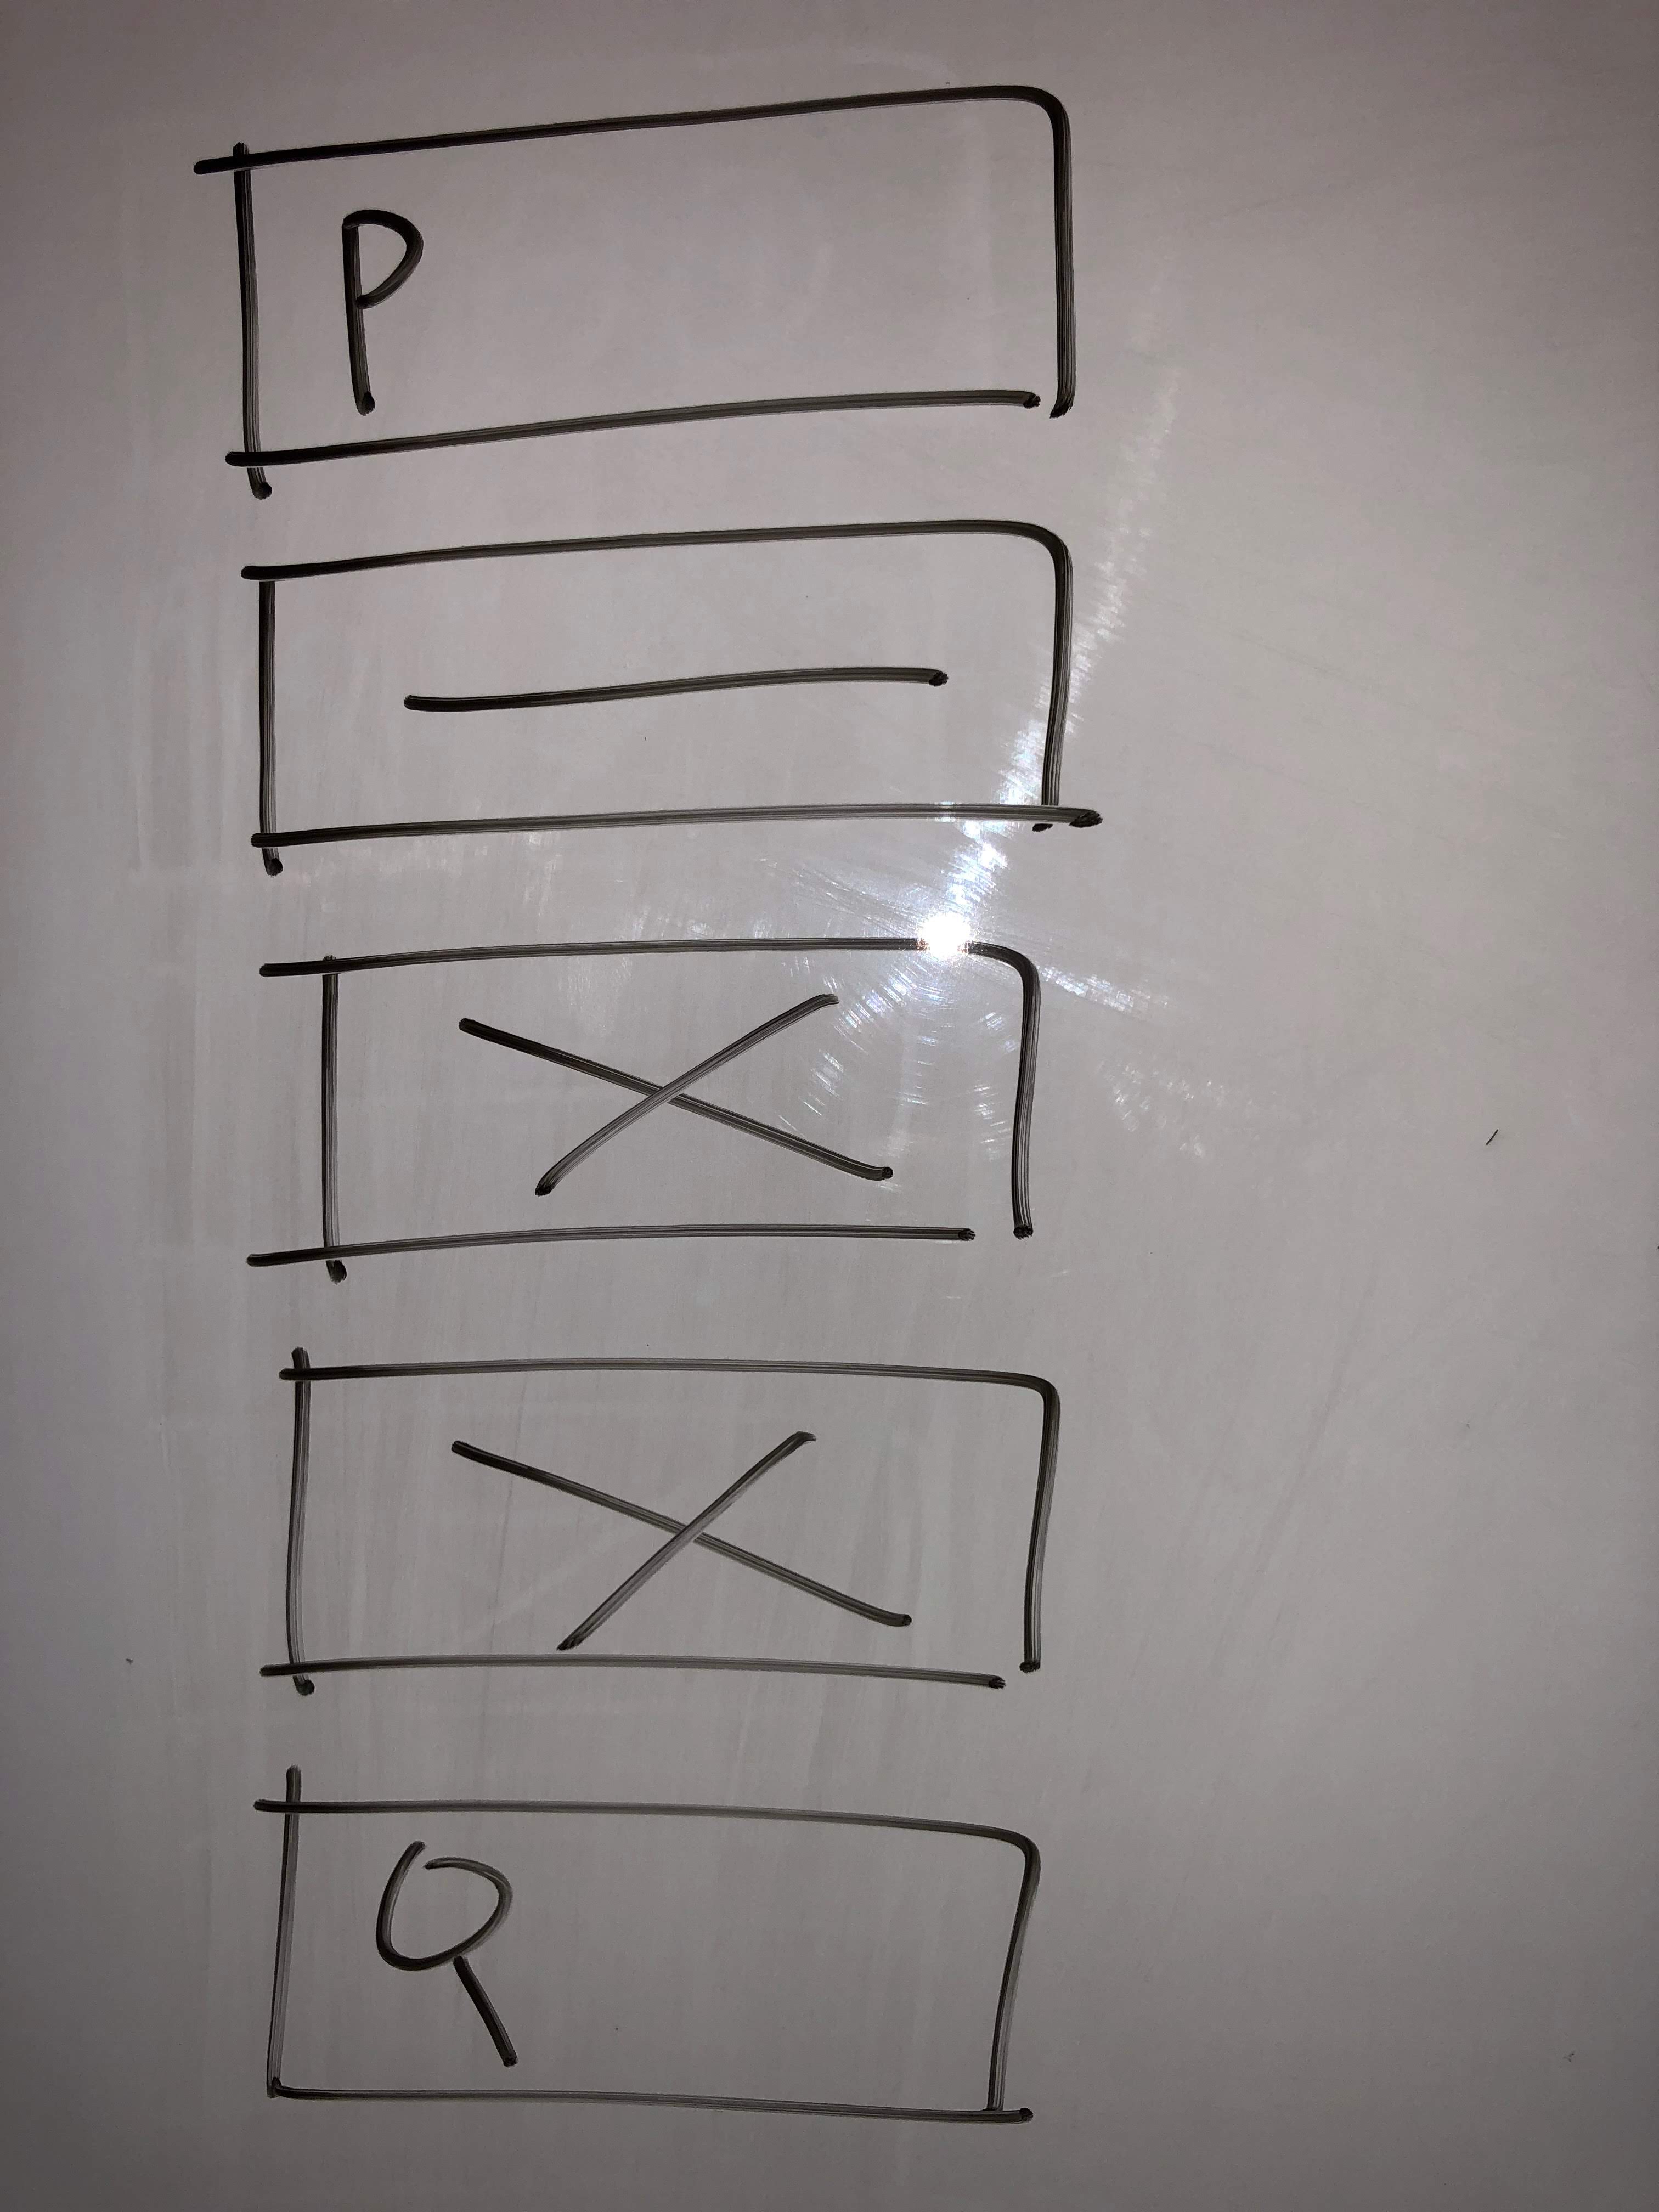 P
X
X
Q